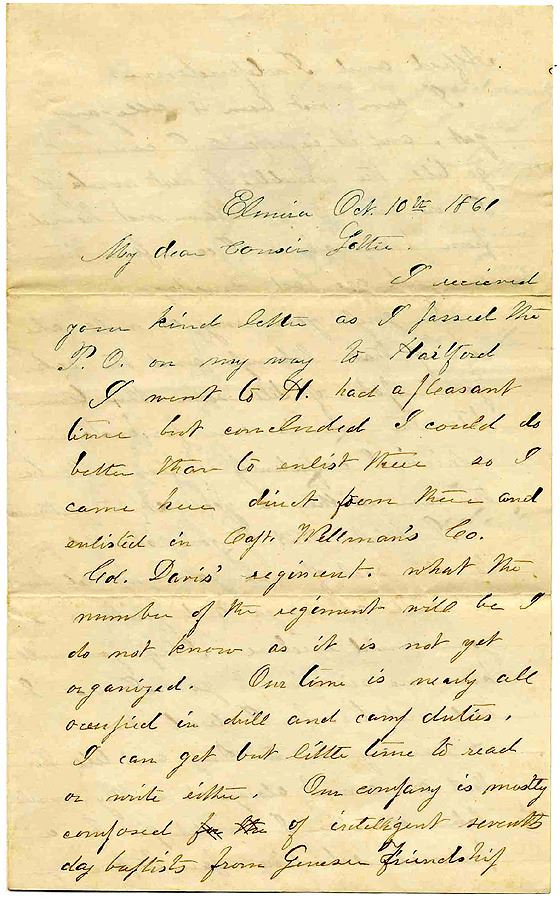 Elmira Oct. 10th 1861
My dear Cousin Lottie.
I recieved
your kind letter as I passed the
P.O. on my way to Hartford
I went to H. had a pleasant
time but concluded I could do
better than to enlist there so I
came here direct from there and
enlisted in Capt. Wellman's Co.
Col. Davis' regiment. what the
number of the regiment will be I
do not know as it is not yet
organized. Our time is nearly all
occupied in drill and camp duties.
I can get but little time to read
or write either. Our company is mostly
composed for the of intelligent seventh
day baptists from Genesee Friendship